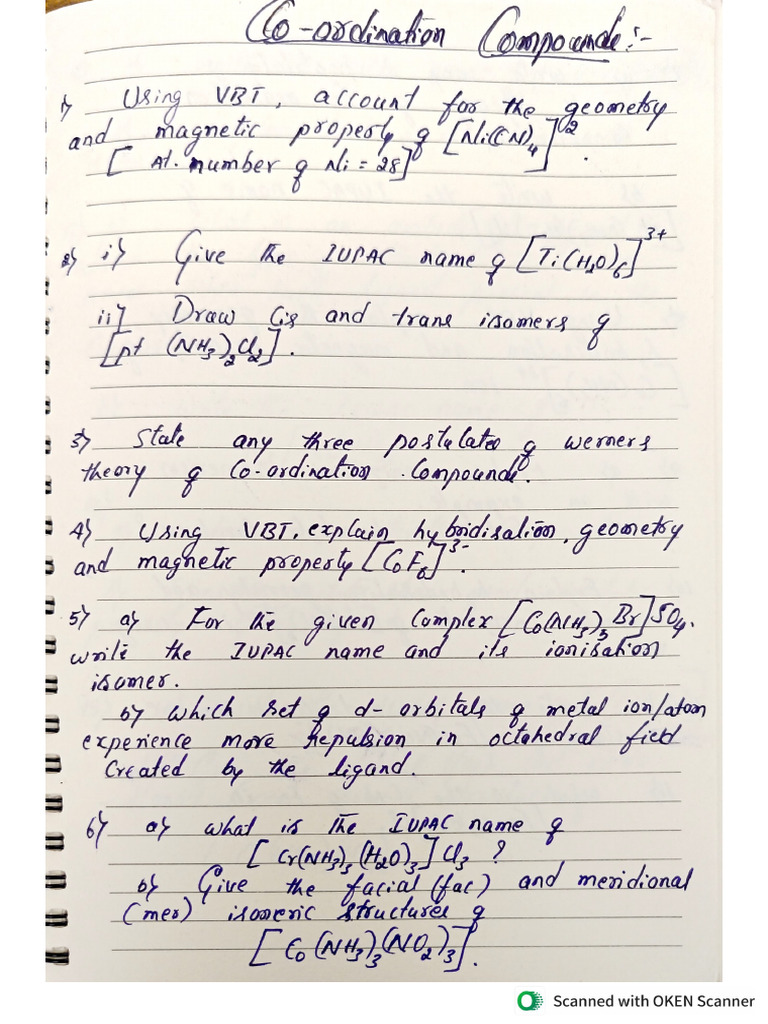 Co-ordination Compounds:-
1) Using VBT, account for the geometry
and magnetic property of [Ni(CN)4]2-.
[At. number of Ni = 28]
2) i) Give the IUPAC name of [Ti(H2O)6]3+
ii) Draw Cis and trans isomers of
[pt (NH3)2Cl2].
3) State any three postulates of werners
theory of Co-ordination Compounds.
4) Using VBT, explain hybridisation, geometry
and magnetic property [CoF6]3-.
5) a) For the given Complex [Co(NH3)3 Br]SO4.
write the IUPAC name and its ionisation
isomer.
b) which set of d- orbitals of metal ion/atom
experience more repulsion in octahedral field
Created by the ligand.
6) a) what is the IUPAC name of
[Cr(NH3)3(H2O)3]Cl3 ?
b) Give the facial (fac) and meridional
(mer) isomeric structures of
[Co(NH3)3(NO2)3].
Scanned with OKEN Scanner